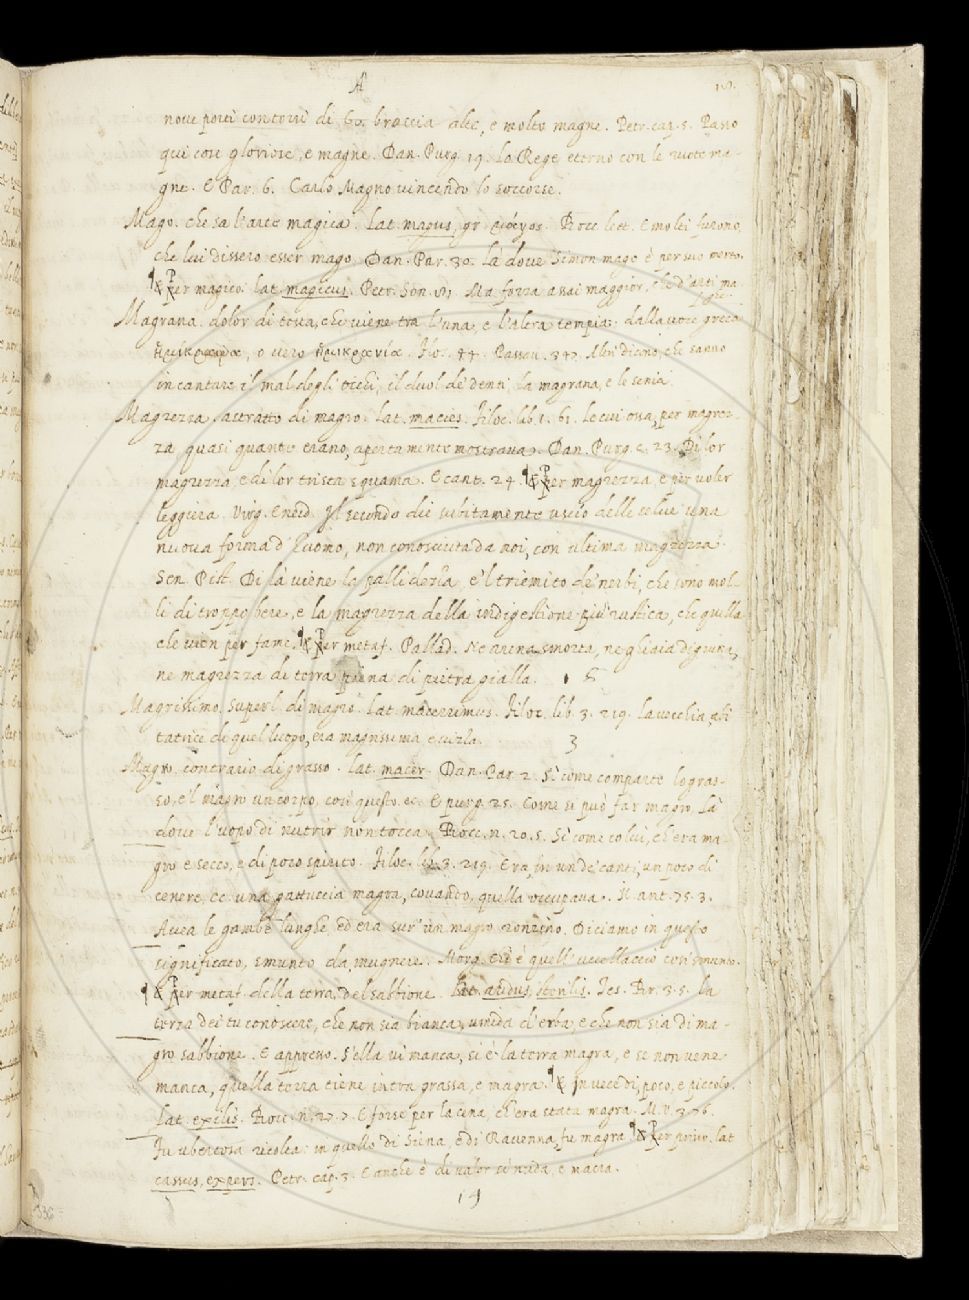 noue ponti contorni di 60. braccia alte, e molto magne. Petr. cap. 5.
qui cose gloriose, e magne. Dan. Purg. 19. Lo Rege eterno con le ruote ma-
gne. E Par. 6. Carlo Magno vincendo lo soccorse.
Mago. che sa l'arte magica. Lat. magus, gr. μάγος. Bocc. lett. E molti furono,
che lui dissero esser mago. Dan. Par. 30. Là doue Simon mago è per suo merto.
¶ & Per magico. lat. magicus. Petr. Son. Ma forza assai maggior, che d'arti ma-
giche.
Magrana. dolor di testa, che viene tra l'una, e l'altra tempia: dalla voce greca
ἡμικραρα, o vero ἡμικρανία. 44. Passau. 347. Altri dicono, che sanno
incantare il mal degli occhi, il duol de' denti la magrana, e le
Magrezza. astratto di magro. Lat. macies. Filoc. lib. 1. 61. Le cui ossa, per magrez-
za quasi quante erano, apertamente mostraua. Dan. Purg. c. 23. Di lor
magrezza, e di lor trista squama. E cant. 24. ¶ & Per magrezza, e per voler
leggiera. Virg. Eneid. Il secondo die subitamente uscio delle selue una
nuoua forma d'huomo, non conosciuta da noi, con ultima magrezza.
Sen. Pist. Di là viene la pallidezza e 'l triemito de' nerbi, che sono mol-
li di troppo bere, e la magrezza della indigestione più rustica, che quella
che vien per fame. ¶ & Per metaf. Pallad. Ne arena smorta, ne ghiaia digiuna,
ne magrezza di terra piena di pietra gialla.
Magrissimo. Superl. di magro. Lat. macerrimus. Filoc. lib. 3. 219. la vecchia abi-
tatrice di quel luogo, era magrissima e vizza.
3
Magro. contrario di grasso. lat. macer. Dan. Par. 2. Sì come comparte lo gras-
so, e 'l magro un corpo, così questo. ec. E purg. 25. Come si può far magro, Là
doue l'uopo di nutrir non tocca. Bocc. n. 20. 5. Sì come colui, ch'era ma-
gro e secco, e di poco spirito. Filoc. lib. 3. 219. Era, in un de' canti, un poco di
cenere, ec. una gattuccia magra, couando, quella occupaua. N. ant. 75. 3.
Auea le gambe lunghe, ed era sur' un magro ronzino. Diciamo in questo
significato, smunto da mugnere. Morg. Ed è quell' uccellaccio così smunto.
¶ & Per metaf. della terra, del sabbione. Lat. aridus, sterilis. Tes. Br. 3. 5. la
terza dei tu conoscere, che non sia bianca, umida d'erba, e che non sia di ma-
gro sabbione. E appresso. S'ella vi manca, si è la terra magra, e se non vene
manca, quella terra tiene intra grassa, e magra. ¶ & in vece di, poco, e piccolo.
Lat. exilis. Bocc. n. 27. 7. E forse per la cena, ch'era stata magra. M. V. 3. 76.
Fu ubertosa ricolta: in quello di Siena, e di Rauenna, fu magra. ¶ & Per priuo. lat.
cassus, expers. Petr. cap. 3. E anche è di valor sì nuda, e macra.
19